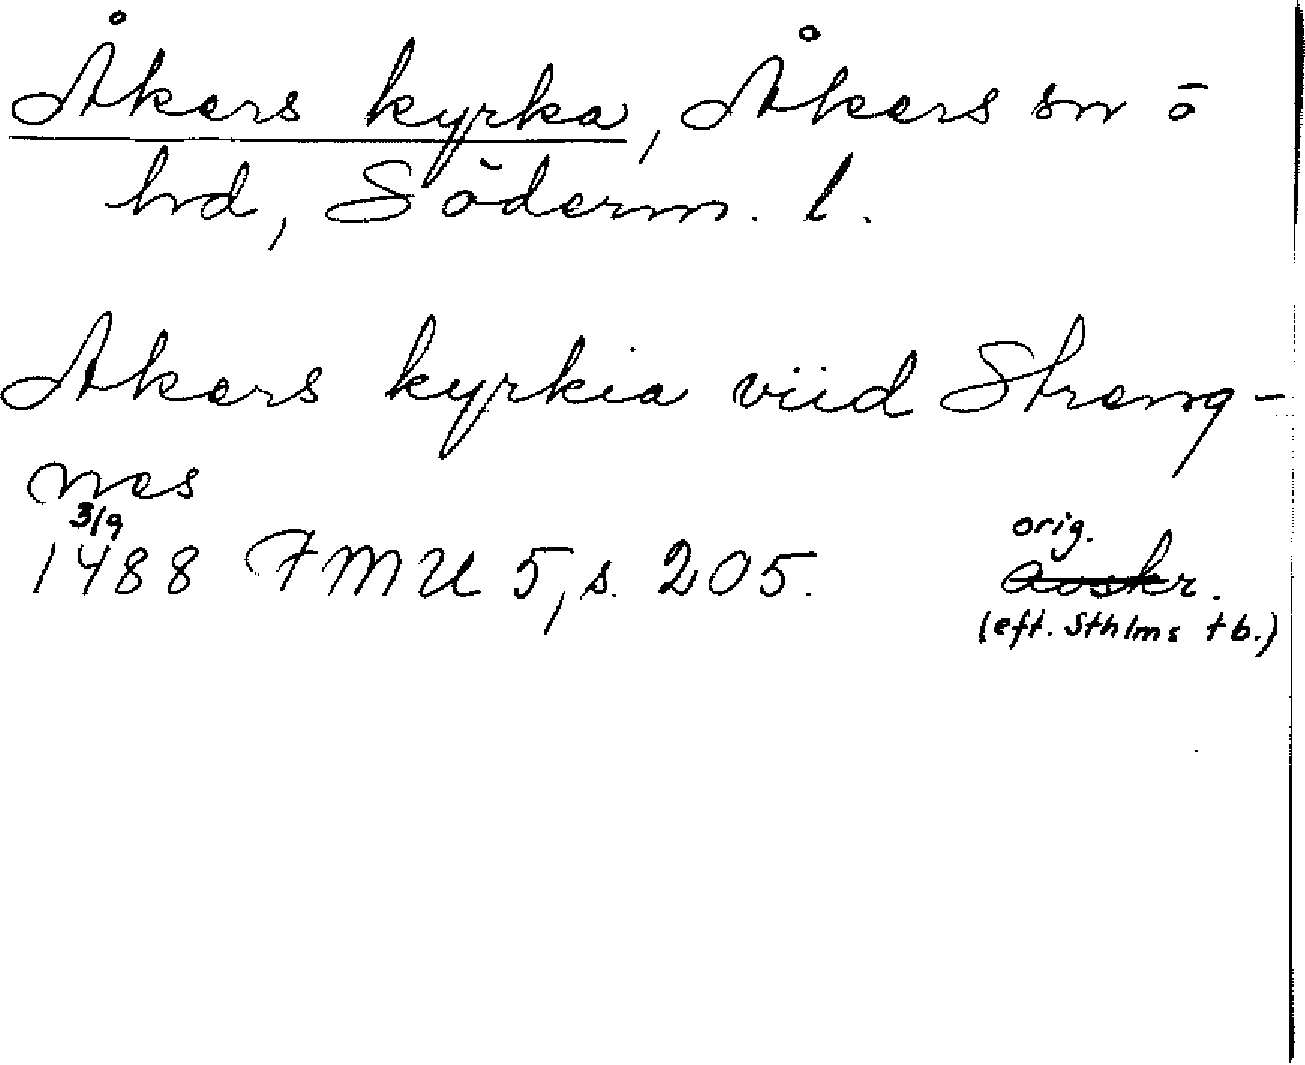 Åkers kyrka, Åkers sn o
hd, Söderm. l.
Akers kyrkia viid Streng-
nes
3/9
1488 FMU 5, s. 205.
orig.
avskr.
(eft. Sthlms tb.)